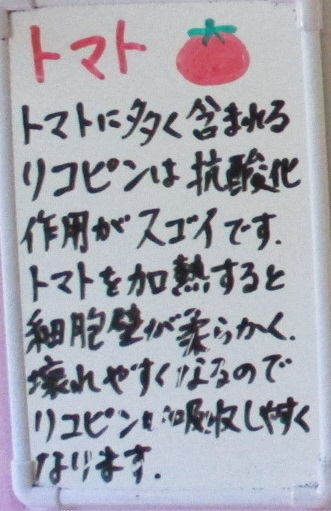 トマト
トマトに多く含まれる
リコピンは抗酸化
作用がスゴイです.
トマトを加熱すると
細胞壁が柔らかく.
壊れやすくなるので
リコピンが吸収しやすく
なります.